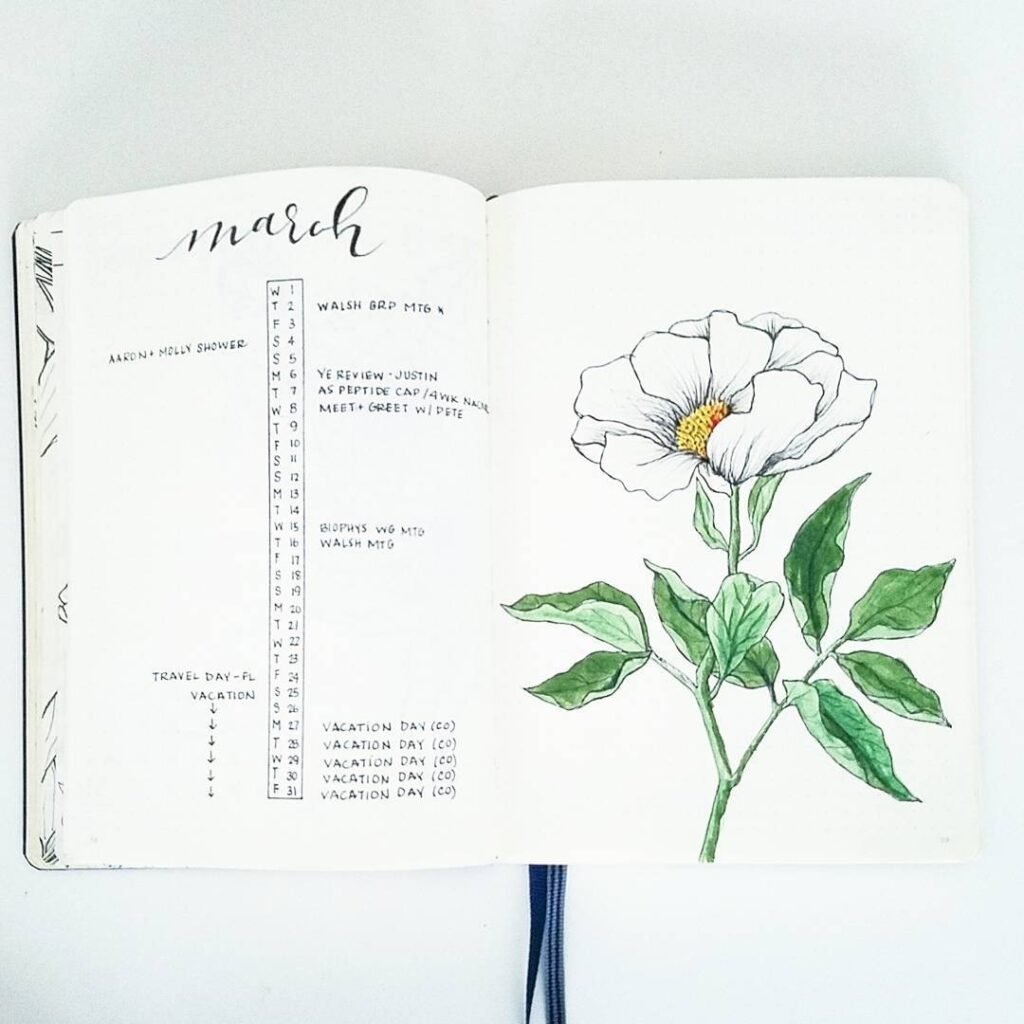 march
W 1
T 2 WALSH GRP MTG x
F 3
AARON + MOLLY SHOWER S 4
S 5
M 6 YE REVIEW - JUSTIN
T 7 AS PEPTIDE CAP / 4WK
W 8 MEET + GREET W/ PETE
T 9
F 10
S 11
S 12
M 13
T 14
W 15 BIOPHYS WG MTG
T 16 WALSH MTG
F 17
S 18
S 19
M 20
T 21
W 22
T 23
TRAVEL DAY - FL F 24
VACATION S 25
↓ S 26
↓ M 27 VACATION DAY (CO)
↓ T 28 VACATION DAY (CO)
↓ W 29 VACATION DAY (CO)
↓ T 30 VACATION DAY (CO)
↓ F 31 VACATION DAY (CO)